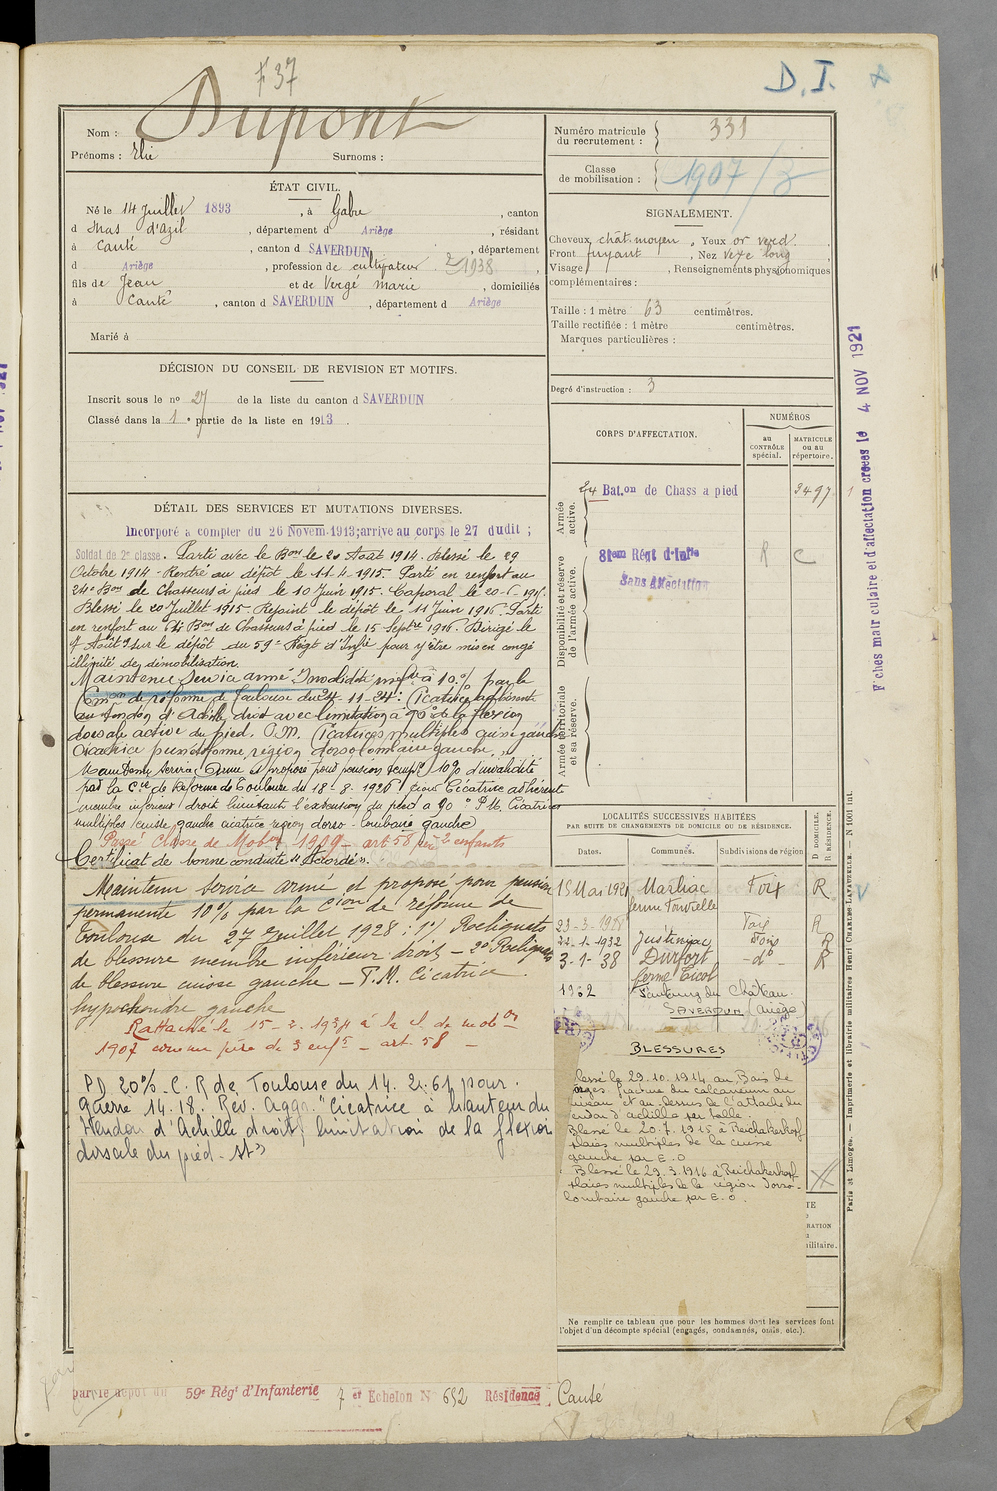 F 37
D. I.
Dupont
Nom :
Prénoms : Elie Surnoms :
Numéro matricule du recrutement : 331
Classe de mobilisation : 1907/3
ÉTAT CIVIL.
Né le 14 Juillet 1893, à Gabre, canton
d Mas d'Azil, département d Ariège, résidant
à Canté, canton d SAVERDUN, département
d Ariège, profession de cultivateur 2/1938
fils de Jean et de Vergé Marie, domiciliés
à Canté, canton d SAVERDUN, département d Ariège
Marié à
SIGNALEMENT.
Cheveux chat. moyen, Yeux or verd.
Front fuyant, Nez vexe long
Visage , Renseignements physionomiques
complémentaires :
Taille : 1 mètre 63 centimètres.
Taille rectifiée : 1 mètre centimètres.
Marques particulières :
Degré d'instruction : 3
DÉCISION DU CONSEIL DE REVISION ET MOTIFS.
Inscrit sous le no 27 de la liste du canton d SAVERDUN
Classé dans la 1e partie de la liste en 1913.
CORPS D'AFFECTATION.
NUMÉROS
au CONTRÔLE spécial.
MATRICULE ou au répertoire.
Armée active.
24 Bat.on de Chass a pied 3497
Disponibilité et réserve de l'armée active.
81em Régt d'Infie R C
Sans Affectation
Armée territoriale et sa réserve.
DÉTAIL DES SERVICES ET MUTATIONS DIVERSES.
Incorporé à compter du 26 Novem. 1913; arrivé au corps le 27 dudit ;
Soldat de 2e classe. Parti avec le Bon le 20 Août 1914. Blessé le 29
Octobre 1914 - Rentré au dépôt le 11-4-1915. Parti en renfort au
24e Bon de Chasseurs à pied le 10 Juin 1915. Caporal le 20-6-1915.
Blessé le 20 Juillet 1915. Rejoint le dépôt le 11 Juin 1916. Parti
en renfort au Bon de Chasseurs à pied le 15 Septbre 1916. Dirigé le
Août sur le dépôt du 59e Régt d'Infie pour y être mis en congé
illimité de démobilisation.
Maintenu Service armé Invalidité à 10% par la
Con de réforme de Toulouse du 24-11-24: Cicatrice adhérente
au tendon d'Achille droit avec limitation à 90° de la flexion
dorsale active du pied. P.M. Cicatrices multiples cuisse gauche
Cicatrice punctiforme région dorso lombaire gauche.
Maintenu Service Armé et proposé pour pension temp. 10% d'invalidité
par la Cie de Réforme de Toulouse du 18-8-1926 pour Cicatrice adhérente
membre inférieur droit limitant l'extension du pied à 90° P.M. Cicatrices
multiples cuisse gauche cicatrice région dorso-lombaire gauche
Passé Classe de Mobon 1909 - art 58 père 2 enfants
Certificat de bonne conduite "Accordé".
Maintenu service armé et proposé pour pension
permanente 10% par la Cion de réforme de
Toulouse du 27 Juillet 1928: 1°) Reliquats
de blessure membre inférieur droit - 2° Reliquats
de blessure cuisse gauche - P.M. Cicatrice
hypochondre gauche
Rattaché le 15-2-1934 à la cl. de mobon
1907 comme père de 3 enfts - art. 58 -
PD 20% - C. R de Toulouse du 14.2.61 pour
guerre 14.18. Rev. Aggr. "Cicatrice à hauteur du
tendon d'Achille droit, limitation de la flexion
dorsale du pied. St"
LOCALITÉS SUCCESSIVES HABITÉES
PAR SUITE DE CHANGEMENTS DE DOMICILE OU DE RÉSIDENCE.
Dates. Communes. Subdivisions de région D DOMICILE. R RÉSIDENCE.
15 Mai 1921 Marliac Foix R
ferme Tourelle
23-3-1928 Foix R
22-1-1932 Justiniac Foix R
3-1-38 Durfort - do - R
ferme Ticol
1962 Faubourg du Château
SAVERDUN (Ariège)
BLESSURES
Blessé le 29.10.1914 au Bois de
orges fracture du calcaneum au
niveau et au dessus de l'attache du
tendon d'achille par balle.
Blessé le 20.7.1915 à Reichakerkopf
plaies multiples de la cuisse
gauche par E.O
Blessé le 29.3.1916 à Reichakerkopf
plaies multiples de la région dorso-
lombaire gauche par E.O.
Ne remplir ce tableau que pour les hommes dont les services font
l'objet d'un décompte spécial (engagés, condamnés, omis, etc.).
par le dépôt du 59e Régt d'Infanterie 7 er Echelon N° 652 Résidence Canté
Fiches matriculaire et d'affectation créées le 4 NOV 1921
Paris et Limoges. — Imprimerie et librairie militaires Henri CHARLES-LAVAUZELLE. — N 1001 int.